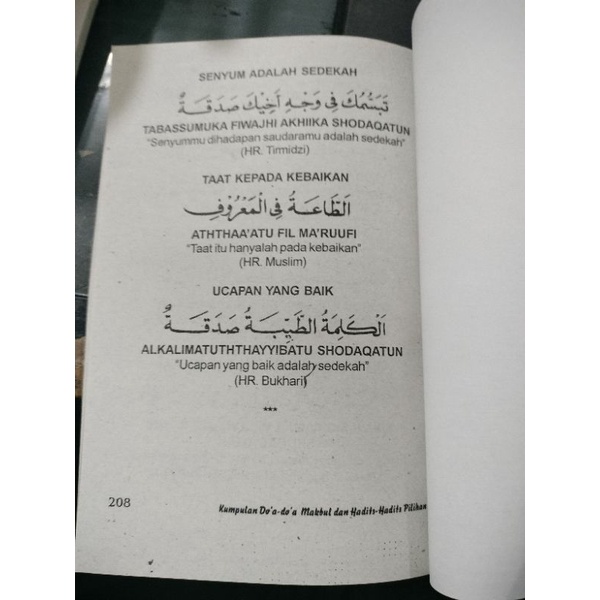 SENYUM ADALAH SEDEKAH
تَبَسُّمُكَ فِي وَجْهِ أَخِيْكَ صَدَقَةٌ
TABASSUMUKA FIWAJHI AKHIIKA SHODAQATUN
"Senyummu dihadapan saudaramu adalah sedekah"
(HR. Tirmidzi)
TAAT KEPADA KEBAIKAN
اَلطَّاعَةُ فِي الْمَعْرُوْفِ
ATHTHAA'ATU FIL MA'RUUFI
"Taat itu hanyalah pada kebaikan"
(HR. Muslim)
UCAPAN YANG BAIK
اَلْكَلِمَةُ الطَّيِّبَةُ صَدَقَةٌ
ALKALIMATUTHTHAYYIBATU SHODAQATUN
"Ucapan yang baik adalah sedekah"
(HR. Bukhari)
***
208
Kumpulan Do'a-do'a Makbul dan Hadits-Hadits Pilihan